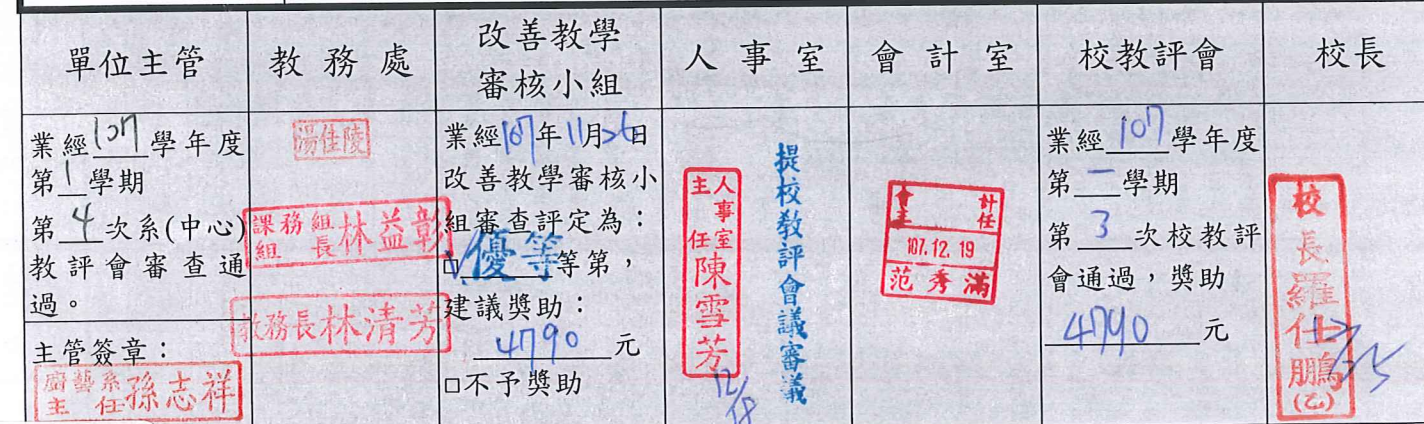 單位主管
教務處
改善教學
審核小組
人事室
會計室
校教評會
校長
業經107學年度
第1學期
第4次系(中心)
教評會審查通
過。
主管簽章：
廚藝系
主任孫志祥
湯佳陵
課務組
組長林益彰
教務長林清芳
業經107年11月26日
改善教學審核小
組審查評定為：
☑優等等第，
建議獎助：
4790元
□不予獎助
人事室
主任陳雪芳
12/18
提校教評會議審議
會計
主任
107.12.19
范秀滿
業經107學年度
第一學期
第3次校教評
會通過，獎助
4790元
校長羅仕鵬
(乙)